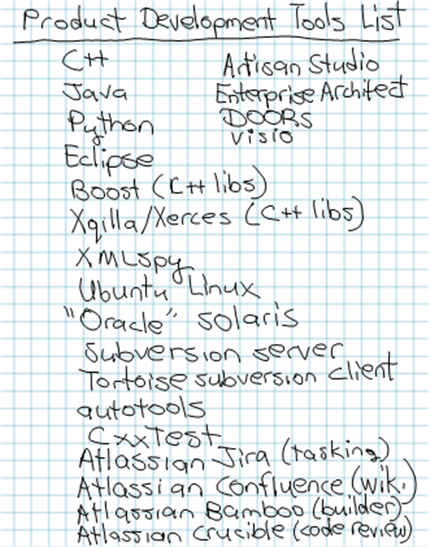 Product Development Tools List
C++ Artisan Studio
Java Enterprise Architect
Python DOORS
Visio
Eclipse
Boost (C++ libs)
Xqilla/Xerces (C++ libs)
XMLspy
Ubuntu Linux
"Oracle" solaris
Subversion server
Tortoise subversion client
autotools
CxxTest
Atlassian Jira (tasking)
Atlassian Confluence (wiki)
Atlassian Bamboo (builder)
Atlassian Crucible (code review)